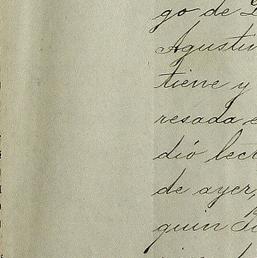 go de
Agustin
tiene y
resada e
dió lect
de ayer,
quin